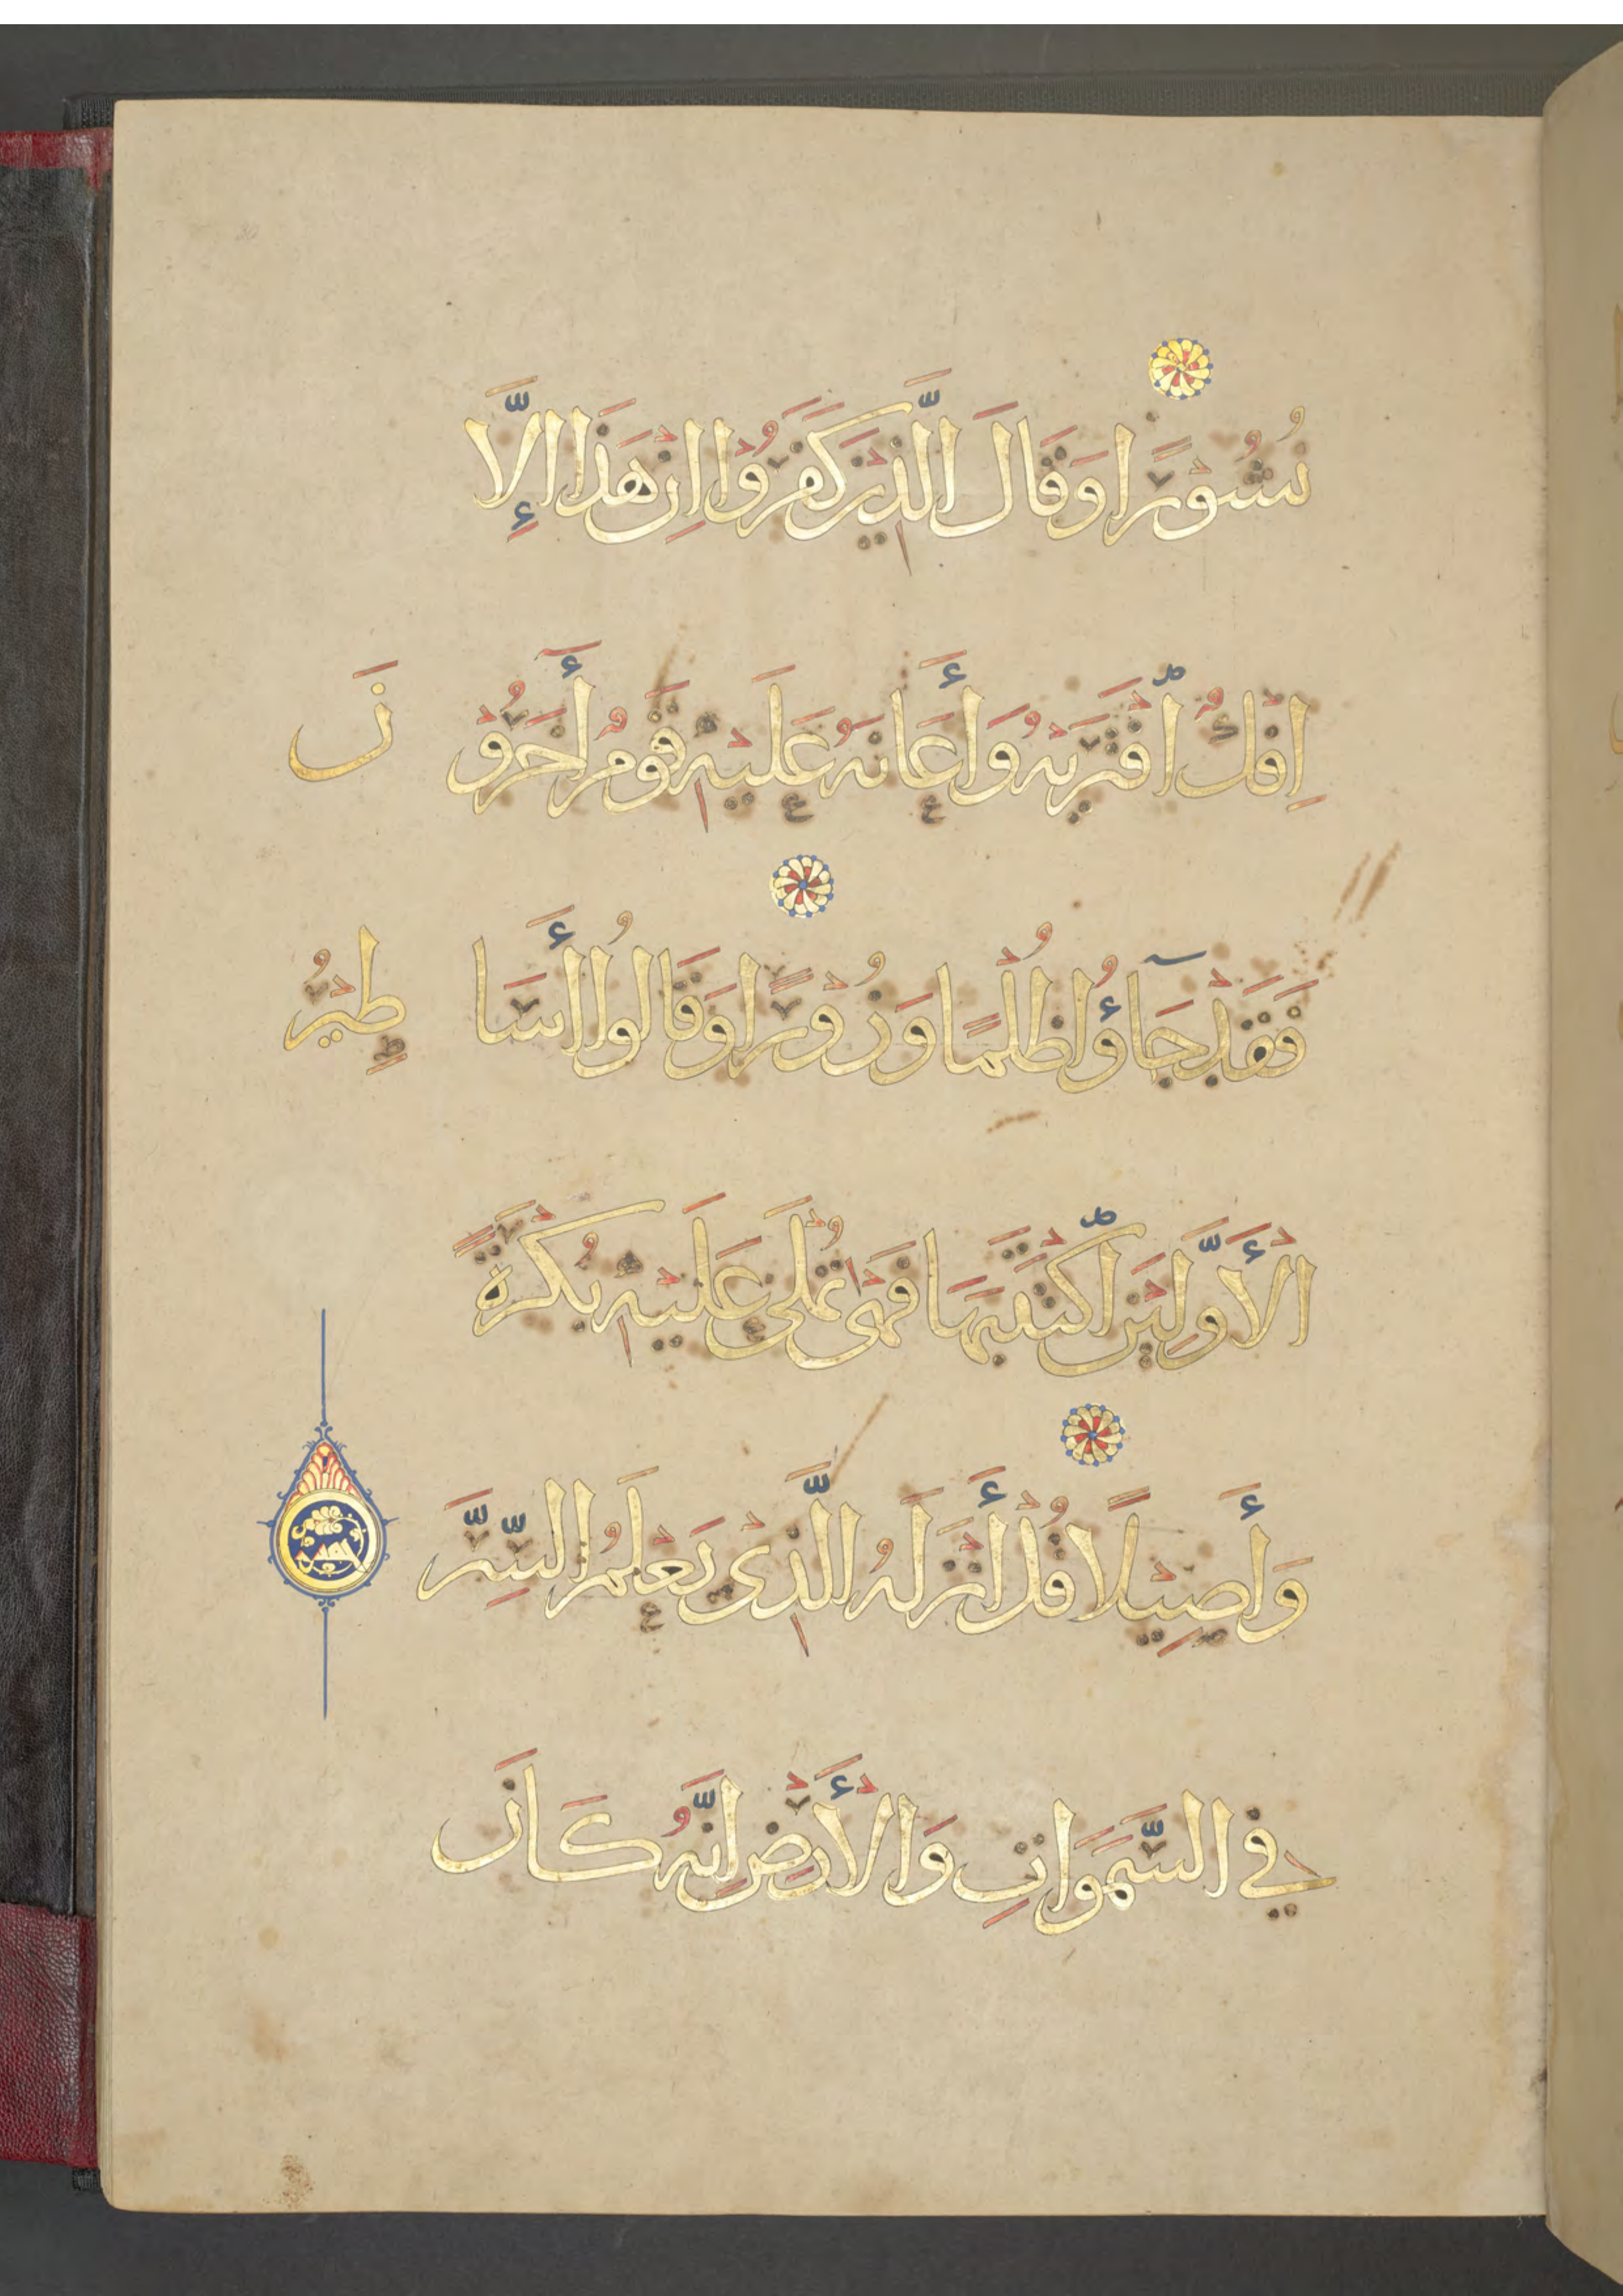 نُشُوْرًا وَقَالَ الَّذِيْنَ كَفَرُوْا اِنْ هَذَا اِلَّا
اِفْكٌ افْتَرَيهُ وَأَعَانَهُ عَلَيْهِ قَوْمٌ أَخَرُوْنَ
فَقَدْ جَآؤُا ظُلْمًا وَزُوْرًا وَقَالُوا أَسَاطِيْرُ
الْأَوَّلِيْنَ اكْتَتَبَهَا فَهْيَ تُمْلَى عَلَيْهِ بُكْرَةً
وَأَصِيْلًا قُلْ أَنْزَلَهُ الَّذِي يَعْلَمُ السِّرَّ
فِي السَّمَوَاتِ وَالْأَرْضِ اِنَّهُ كَانَ